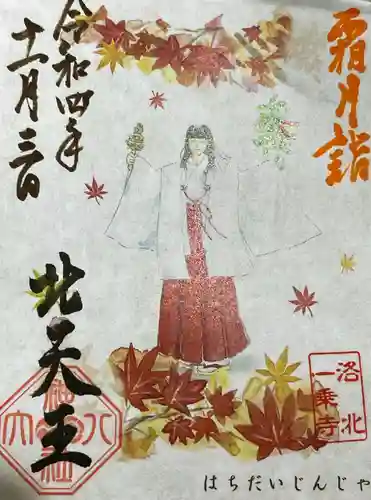 霜月詣
令和四年
十一月三日
北天王
八大神社
洛北
一乗寺
はちだいじんじゃ